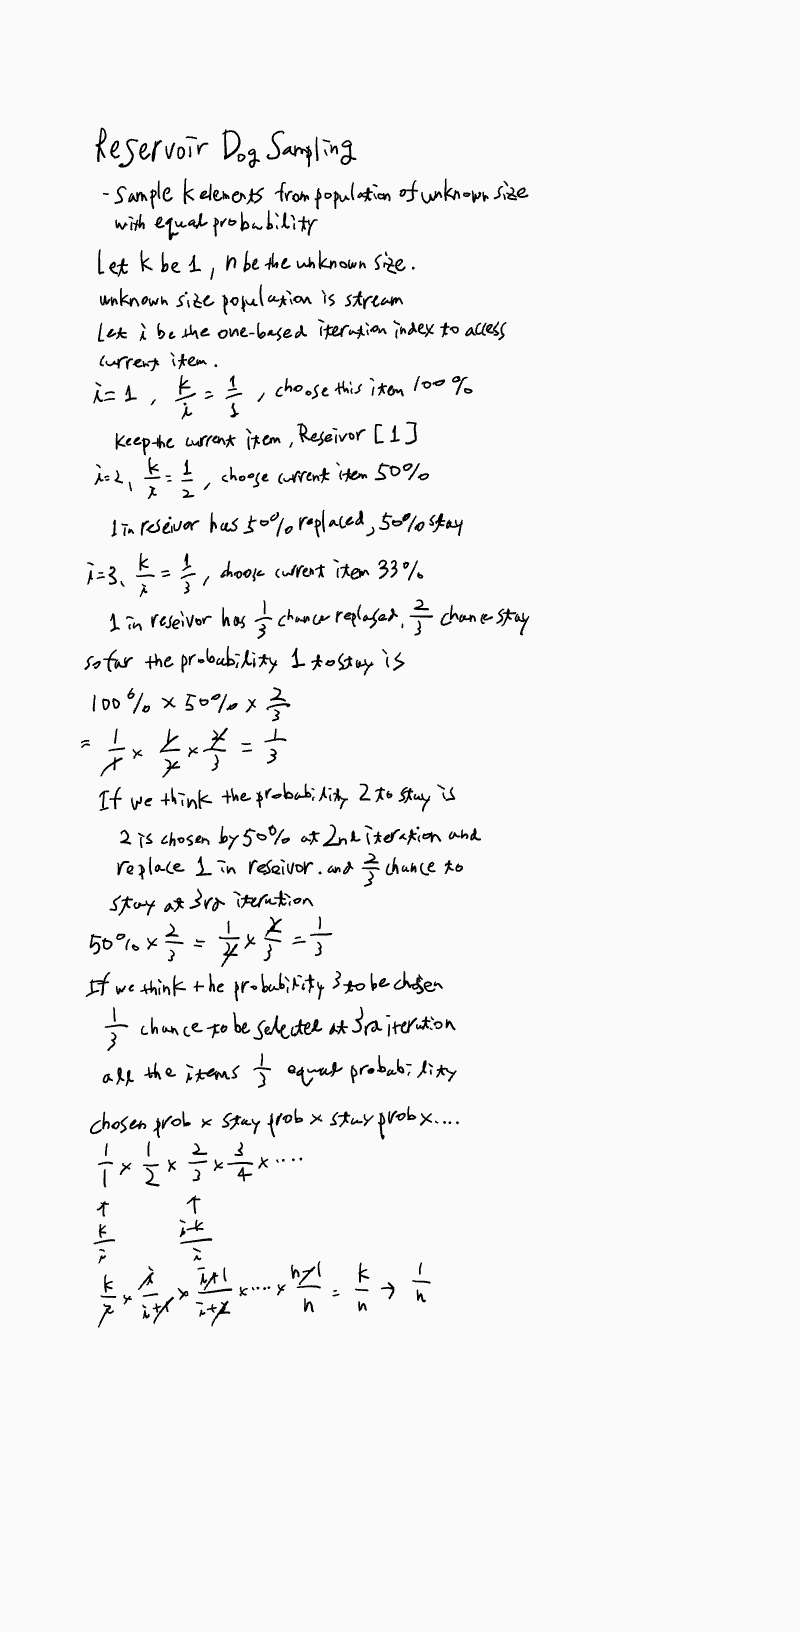 Reservoir Dog Sampling
- Sample k elements from population of unknown size
with equal probability
Let k be 1, n be the unknown size.
unknown size population is stream
Let i be the one-based iteration index to access
current item.
i=1, k/i = 1/1, choose this item 100%
Keep the current item, Reseivor [1]
i=2, k/i = 1/2, choose current item 50%
1 in reseivor has 50% replaced, 50% stay
i=3, k/i = 1/3, choose current item 33%
1 in reseivor has 1/3 chance replased, 2/3 chance stay
so far the probability 1 to stay is
100% × 50% × 2/3
= 1/1 × 1/2 × 2/3 = 1/3
If we think the probability 2 to stay is
2 is chosen by 50% at 2nd iteration and
replace 1 in reseivor. and 2/3 chance to
stay at 3rd iteration
50% × 2/3 = 1/2 × 2/3 = 1/3
If we think the probability 3 to be chosen
1/3 chance to be selected at 3rd iteration
all the items 1/3 equal probability
chosen prob × stay prob × stay prob × ....
1/1 × 1/2 × 2/3 × 3/4 × ....
↑ ↑
k/i i-k/i
k/i × i/i+1 × i+1/i+2 × .... × n-1/n = k/n → 1/n